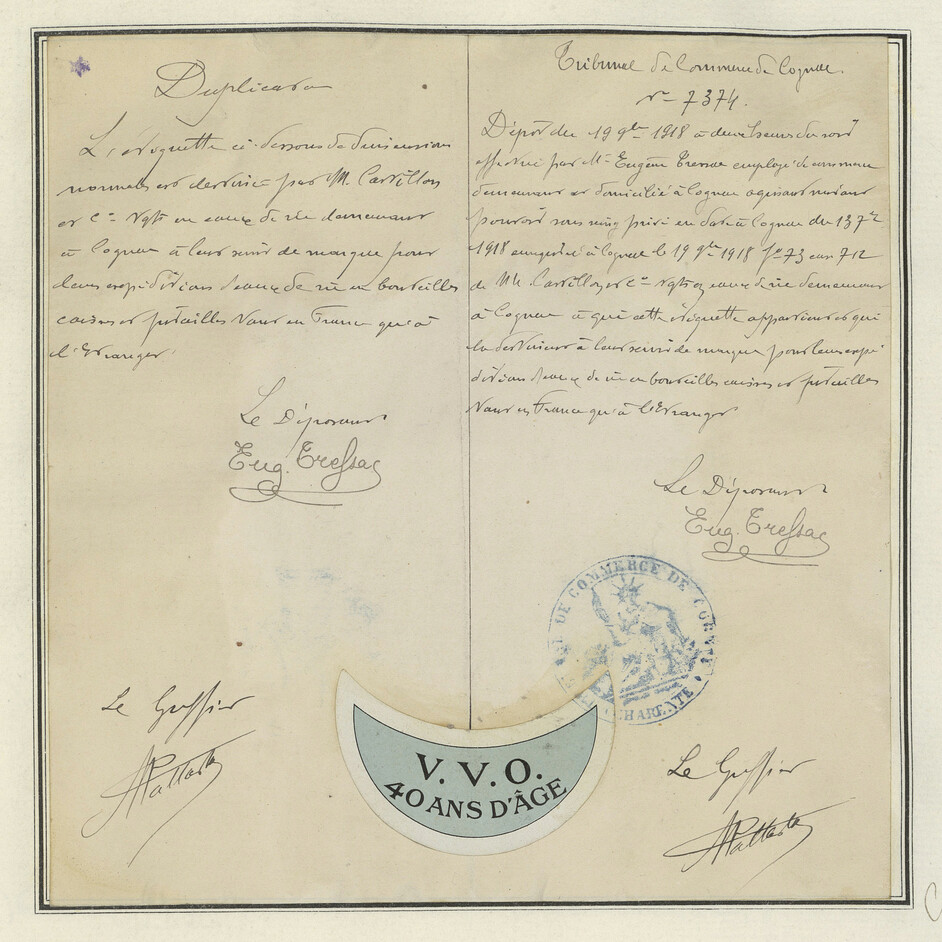 Duplicata
L'étiquette ci-dessous de dimensions
normales est destinée par M. Castillon
et Cie Ngts en eaux de vie demeurant
à Cognac à leur servir de marque pour
leurs expéditions d'eaux de vie en bouteilles
caisses et futailles tant en France qu'à
l'Etranger
Le Déposant
Eug. Tressac
Le Greffier
Tribunal de Commerce de Cognac
No 7374.
Dépôt du 19 9bre 1918 à deux heures du soir
effectué par Mr Eugène Tressac employé de commerce
demeurant et domicilié à Cognac agissant suivant
pouvoir sous seing privé en date à Cognac du 13 7bre
1918 enregistré à Cognac le 19 9bre 1918 fo 73 case 712
de MM. Castillon et Cie Ngts en eaux de vie demeurant
à Cognac à qui cette étiquette appartient et qui
la destinent à leur servir de marque pour leurs expé
ditions d'eaux de vie en bouteilles caisses et futailles
tant en France qu'à l'Etranger
Le Déposant
Eug. Tressac
DE COMMERCE DE
CHARENTE
Le Greffier
V. V. O.
40 ANS D'ÂGE